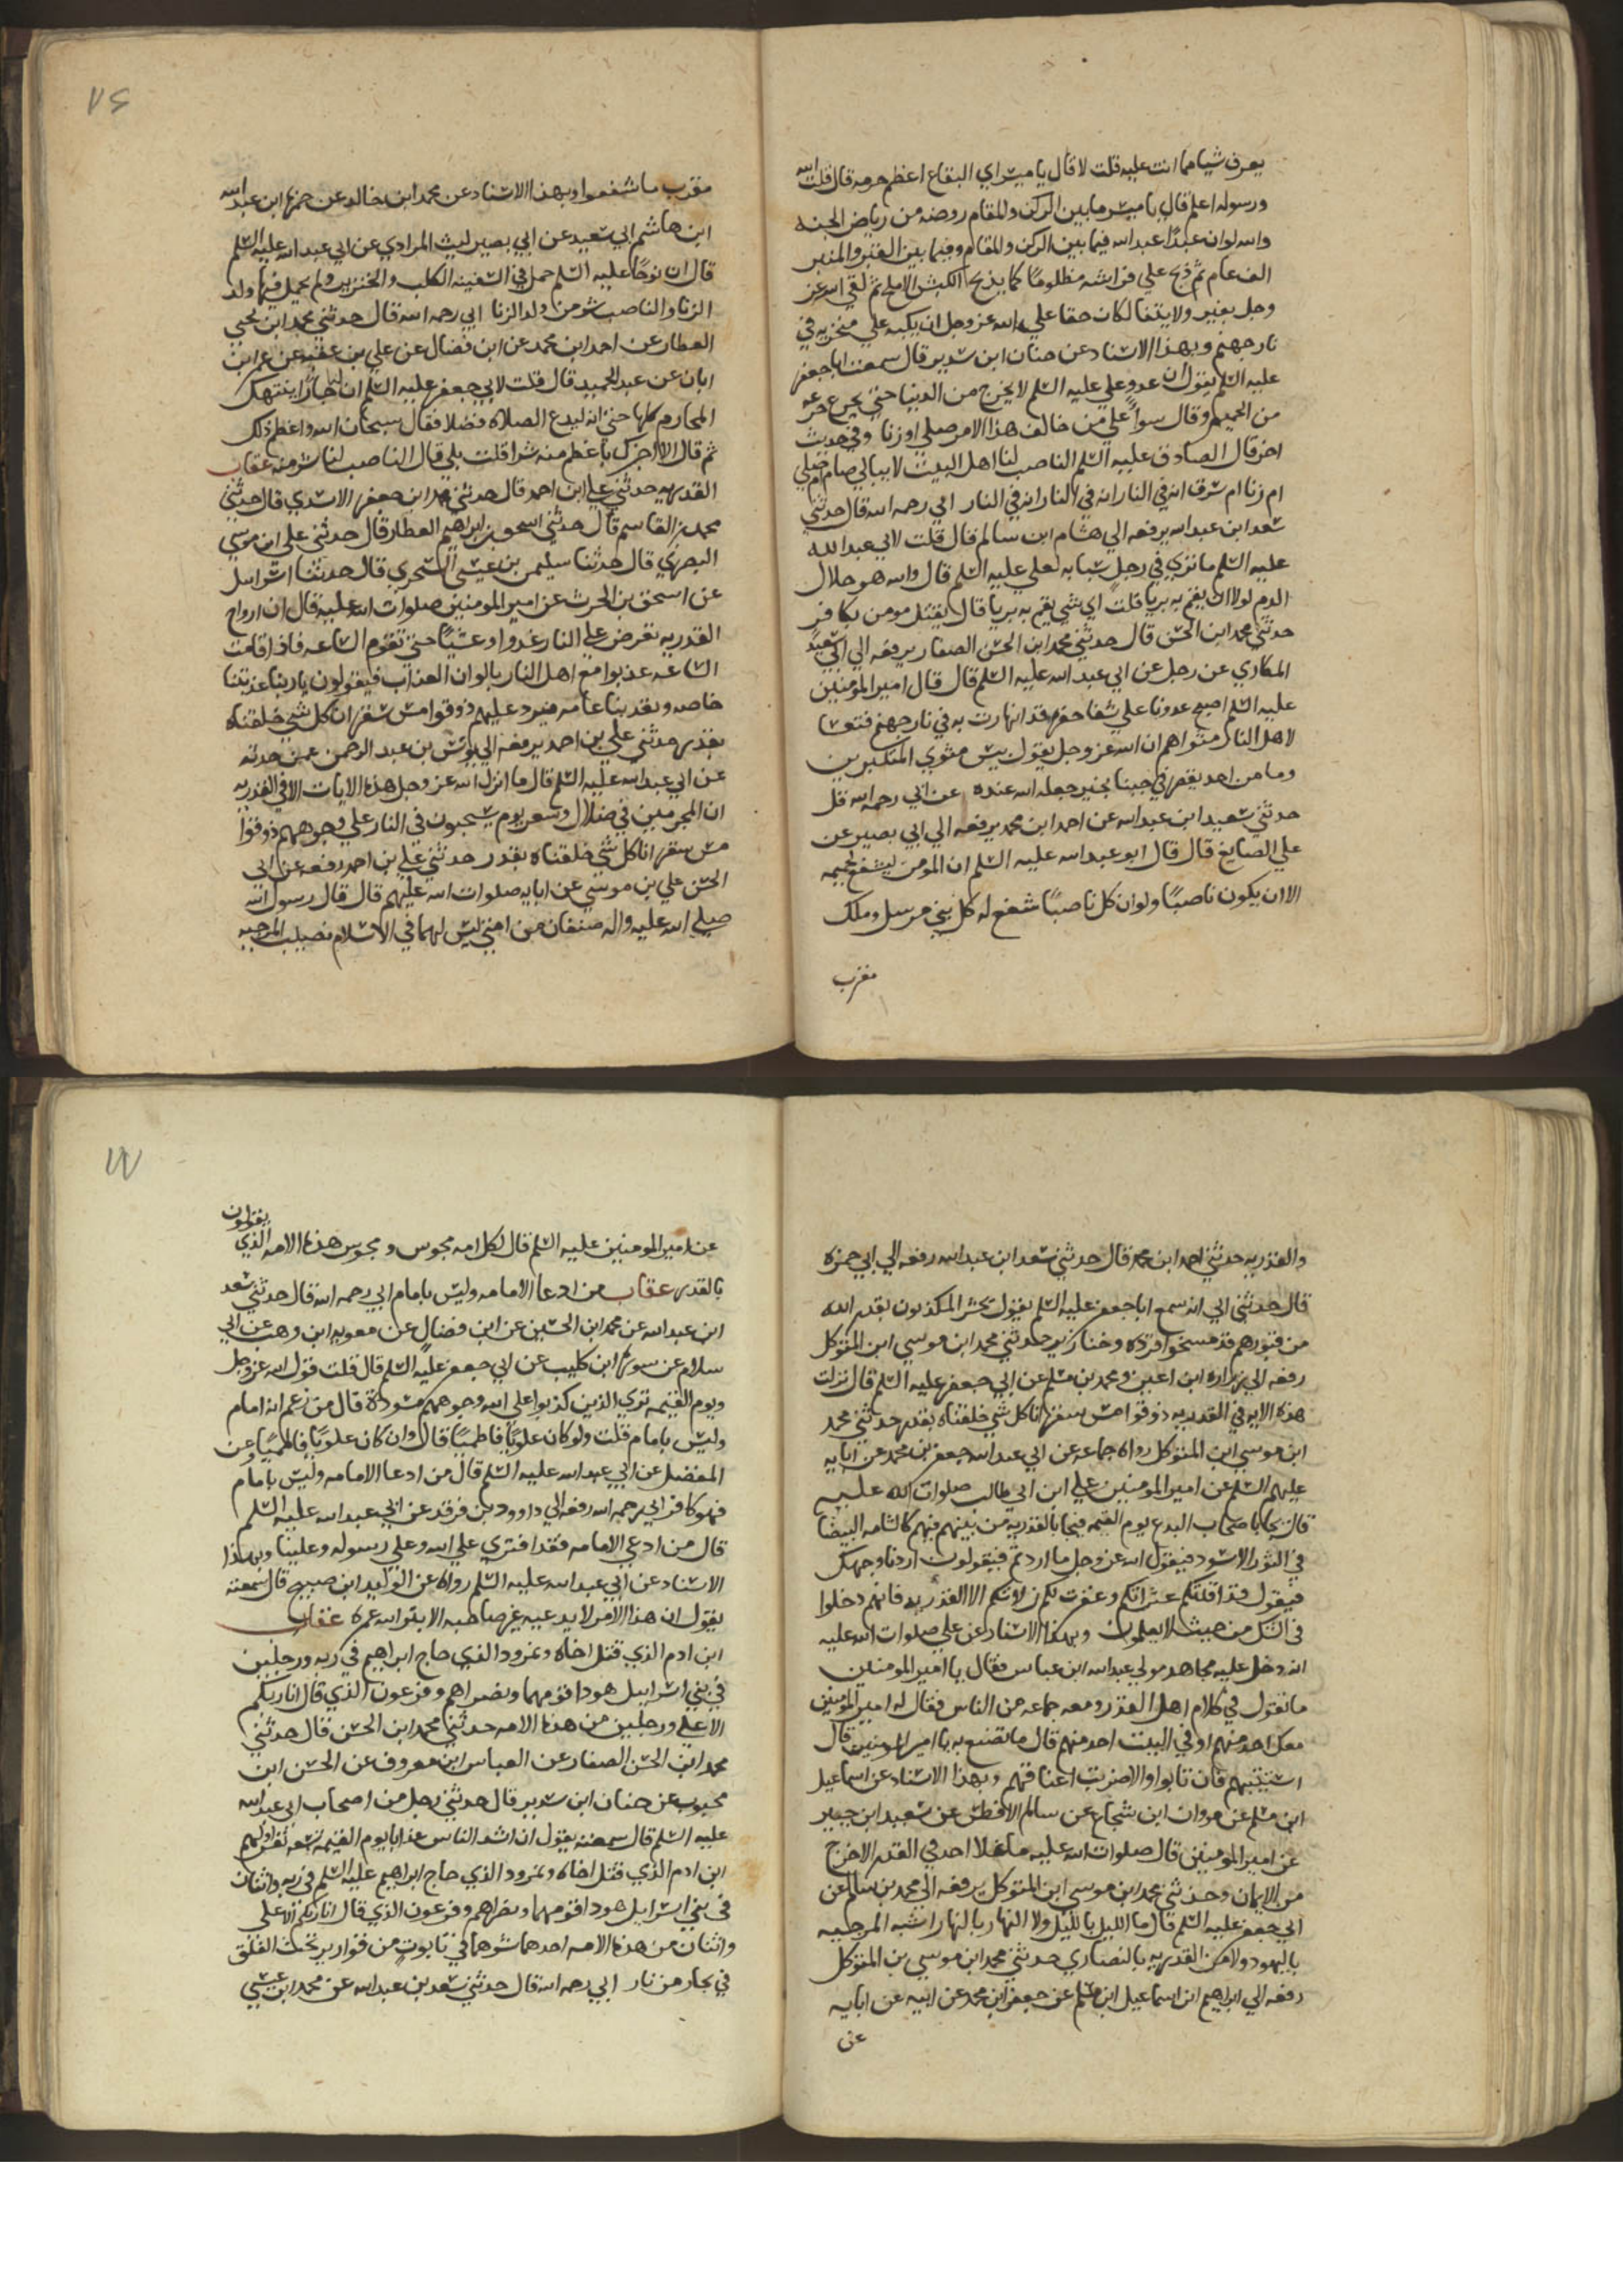 يعرف شيا مما انت عليه قلت لا قال يا ميسر اي البقاع اعظم حرمه قال قلت الله
ورسوله اعلم قال يا ميسر ما بين الركن والمقام روضه من رياض الجنه
والله لو ان عبدًا عبد الله فيما بين الركن والمقام وفيما بين القبر والمنبر
الف عام ثم ذبح علي فراشه مظلومًا كما يذبح الكبش الاملح ثم لقي الله عز
وجل بغير ولايتنا لكان حقا علي الله عز وجل ان يكبه علي منخريه في
نار جهنم وبهذا الاسناد عن حنان ابن سدير قال سمعت ابا جعفر
عليه السلم يقول ان عدو علي عليه السلم لا يخرج من الدنيا حتي يجرع جرعه
من الحميم وقال سواً علي من خالف هذا الامر صلي او زنا وفي حديث
اخر قال الصادق عليه السلم الناصب لنا اهل البيت لا يبالي صام ام صلي
ام زنا ام سرق انه في النار انه في النار انه في النار ابي رحمه الله قال حدثني
سعد ابن عبد الله يرفعه الي هشام ابن سالم قال قلت لابي عبد الله
عليه السلم ما تري في رجل سبابه لعلي عليه السلم قال والله هو حلال
الدم لولا ان يغم به بريا قلت اي شي يغم به بريا قال يقتل مومن بكافر
حدثني محمد ابن الحسن قال حدثني محمد ابن الحسن الصفار يرفعه الي ابي سعيد
المكاري عن رجل عن ابي عبد الله عليه السلم قال قال امير المومنين
عليه السلم اصبح عدونا علي شفا حفره قد انهارت به في نار جهنم فتعسا
لاهل النار مثواهم ان الله عز وجل يقول بيس مثوي المتكبرين
وما من احد يقصر في حبنا بخير جعله الله عنده عن ابي رحمه الله قل
حدثني سعيد ابن عبد الله عن احمد ابن محمد يرفعه الي ابي بصير عن
علي الصايغ قال قال ابو عبد الله عليه السلم ان المومن ليشفع لحميمه
الا ان يكون ناصبًا ولو ان كل ناصبًا شفع له كل نبي مرسل وملك
مقرب
٧٦
مقرب ما شفعوا وبهذا الاسناد عن محمد ابن خالد عن حمزه ابن عبد الله
ابن هاشم ابي سعيد عن ابي بصير ليث المرادي عن ابي عبد الله عليه السلم
قال ان نوحًا عليه السلم حمل في السفينه الكلب والخنزير ولم يحمل فيها ولد
الزنا والناصب شر من ولد الزنا ابي رحمه الله قال حدثني محمد ابن يحيي
العطار عن احمد ابن محمد عن ابن فضال عن علي بن عقبه عن عمر ابن
ابان عن عبد الحميد قال قلت لابي جعفر عليه السلم ان لنا جارًا ينتهك
المحارم كلها حتي انه ليدع الصلاه فضلا فقال سبحان الله واعظم ذلك
ثم قال الا اخبرك باعظم منه شرا قلت بلي قال الناصب لنا شر منه عقاب
القدريه حدثني علي ابن احمد قال حدثني محمد ابن جعفر الاسدي قال حدثني
محمد بن القاسم قال حدثني اسحق بن ابراهيم العطار قال حدثني علي ابن موسي
البصري قال حدثنا سليمن بن عيسي السحري قال حدثنا اسراييل
عن اسحق بن الحرث عن امير المومنين صلوات الله عليه قال ان ارواح
القدريه تعرض علي النار غدوا وعشيًا حتي تقوم الساعه فاذا قامت
الساعه عذبوا مع اهل النار بالوان العذاب فيقولون يا ربنا عذبتنا
خاصه وتعذبنا عامه فيرد عليهم ذوقوا مس سقر انا كل شي خلقناه
بقدر حدثني علي بن احمد يرفعه الي يونس بن عبد الرحمن عمن حدثه
عن ابي عبد الله عليه السلم قال ما انزل الله عز وجل هذه الايات الا في القدريه
ان المجرمين في ضلال وسعر يوم يسحبون في النار علي وجوههم ذوقوا
مس سقر انا كل شي خلقناه بقدر حدثني علي بن احمد رفعه عن ابي
الحسن علي بن موسي عن ابايه صلوات الله عليهم قال قال رسول الله
صلي الله عليه واله صنفان من امتي ليس لهما في الاسلام نصيب المرجيه
والقدريه حدثني احمد ابن محمد قال حدثني سعد ابن عبد الله رفعه الي ابي حمزه
قال حدثني ابي انه سمع ابا جعفر عليه السلم يقول يحشر المكذبون بقدر الله
من قبورهم قد مسخوا قرده وخنازير حدثني محمد ابن موسي ابن المتوكل
رفعه الي زراره ابن اعين ومحمد بن مسلم عن ابي جعفر عليه السلم قال نزلت
هذه الايه في القدريه ذوقوا مس سقر انا كل شي خلقناه بقدر حدثني محمد
ابن موسي ابن المتوكل رواه جماعه عن ابي عبد الله جعفر بن محمد عن ابايه
عليهم السلم عن امير المومنين علي ابن ابي طالب صلوات الله عليه
قال يجا باصحاب البدع يوم القيمه فيجا بالقدريه من بينهم فيهم كالشامه البيضا
في الثور الاسود فيقول الله عز وجل ما اردتم فيقولون اردنا وجهك
فيقول قد اقلتكم عثراتكم وغفرت لكم زلاتكم الا القدريه فانهم دخلوا
في الشك من حيث لا يعلمون وبهذا الاسناد عن علي صلوات الله عليه
انه دخل عليه مجاهد مولي عبد الله ابن عباس فقال يا امير المومنين
ما تقول في كلام اهل القدر ومعه جماعه من الناس فقال له امير المومنين
معك احد منهم او في البيت احد منهم قال ما تصنع به يا امير المومنين قال
استتيبهم فان تابوا والا ضربت اعناقهم وبهذا الاسناد عن اسماعيل
ابن مسلم عن مروان ابن شجاع عن سالم الافطس عن سعيد ابن جبير
عن امير المومنين قال صلوات الله عليه ما غلا احد في القدر الا خرج
من الايمان وحدثني محمد ابن موسي ابن المتوكل يرفعه الي محمد بن سالم عن
ابي جعفر عليه السلم قال ما الليل بالليل ولا النهار بالنهار اشبه المرجيه
باليهود ولا من القدريه بالنصاري حدثني محمد ابن موسي بن المتوكل
رفعه الي ابراهيم ابن اسماعيل ابن مسلم عن جعفر ابن محمد عن ابيه عن ابايه
عن
٧٧
عن امير المومنين عليه السلم قال لكل امه مجوس ومجوس هذه الامه الذي يقولون
بالقدر عقاب من ادعا الامامه وليس بامام ابي رحمه الله قال حدثني سعد
ابن عبد الله عن محمد ابن الحسين عن ابن فضال عن معويه ابن وهب عن ابي
سلام عن سوره ابن كليب عن ابي جعفر عليه السلم قال قلت قول الله عز وجل
ويوم القيمه تري الذين كذبوا علي الله وجوههم مسوده قال من زعم انه امام
وليس بامام قلت ولو كان علويًا فاطميًا قال وان كان علويًا فاطميًا وعن
المفضل عن ابي عبد الله عليه السلم قال من ادعا الامامه وليس بامام
فهو كافر ابي رحمه الله رفعه الي داوود بن فرقد عن ابي عبد الله عليه السلم
قال من ادعي الامامه فقد افتري علي الله وعلي رسوله وعلينا وبهذا
الاسناد عن ابي عبد الله عليه السلم رواه عن الوليد ابن صبيح قال سمعته
يقول ان هذا الامر لا يدعيه غير صاحبه الا بتر الله عمره عقاب
ابن ادم الذي قتل اخاه ونمرود الذي حاج ابراهيم في ربه ورجلين
في بني اسراييل هودا قومهما ونصراهم وفرعون الذي قال انا ربكم
الاعلي ورجلين من هذه الامه حدثني محمد ابن الحسن قال حدثني
محمد ابن الحسن الصفار عن العباس ابن معروف عن الحسن ابن
محبوب عن حنان ابن سدير قال حدثني رجل من اصحاب ابي عبد الله
عليه السلم قال سمعته يقول ان اشد الناس عذابا يوم القيمه تسعه نفر اولهم
ابن ادم الذي قتل اخاه ونمرود الذي حاج ابراهيم عليه السلم في ربه واثنان
في بني اسراييل هودا قومهما ونصراهم وفرعون الذي قال انا ربكم الاعلي
واثنان من هذه الامه احدهما شرهما في تابوت من قوارير تحت الفلق
في بحار من نار ابي رحمه الله قال حدثني سعد بن عبد الله عن محمد ابن عيسي